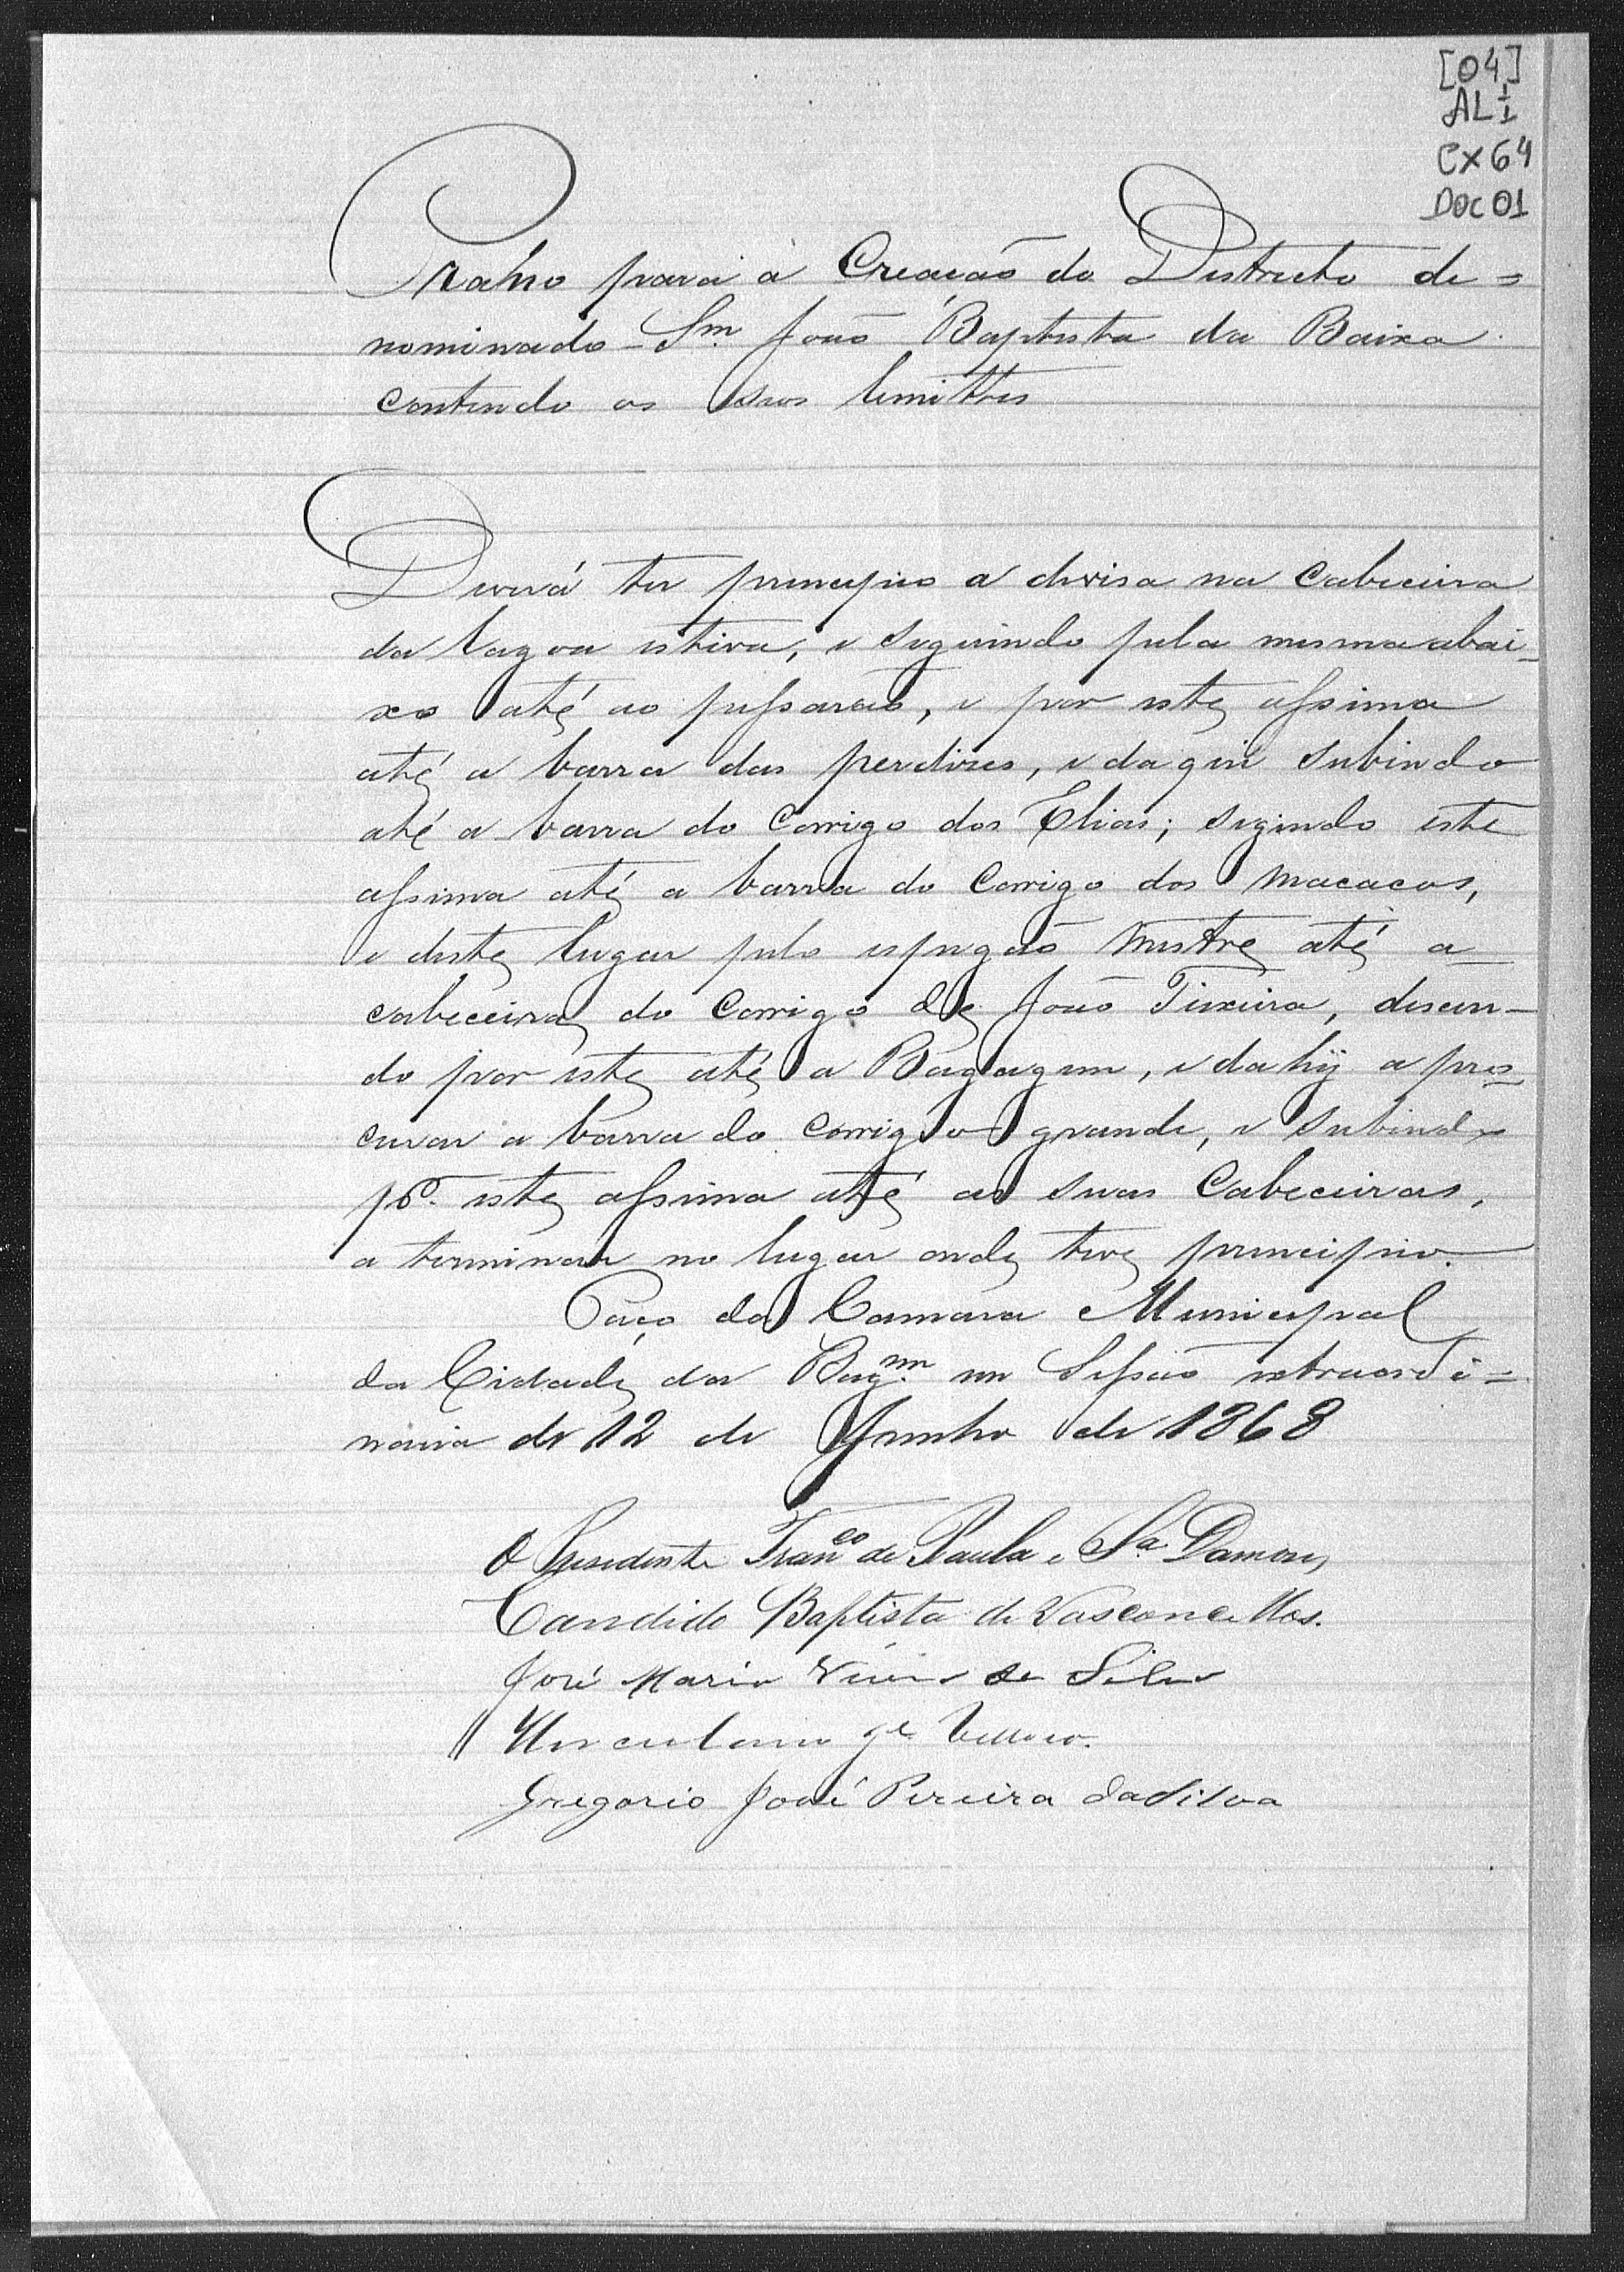 [04]
AL I I
CX 64
DOC 01
para a Creacaõ do Districto de=
nominado - Sm. Joaõ Baptista da Baixa
contendo os seos limittes
Deverá ter principio a divisa na Cabeceira
da lagoa estiva, e seguindo pela mesma abai-
xo até ao pissarraõ, e por este assima
até a barra das perdizes, e daqui subindo
até a barra do Corrigo dos Elias; segindo este
assima até a barra do Corrigo dos Macacos,
e deste lugar pelo espigaõ mestre até a
cabeceira do Corrigo de Joaõ Teixeira, descen-
do por este até a Bagagem, e dahy a pro-
curar a barra do Corrigo grande, e subindo
pr. este assima até as suas Cabeceiras,
a terminar no lugar onde teve principio.
Paço da Camara Municipal
da Cidade da Bagm. em Sessaõ extraordi=
naria de 12 de Junho de 1868
O Presidente Franco de Paula e Sa.
Candido Baptista de Vasconcellos.
José Maria da Silva
Herculano
Gregorio José Pereira da Silva